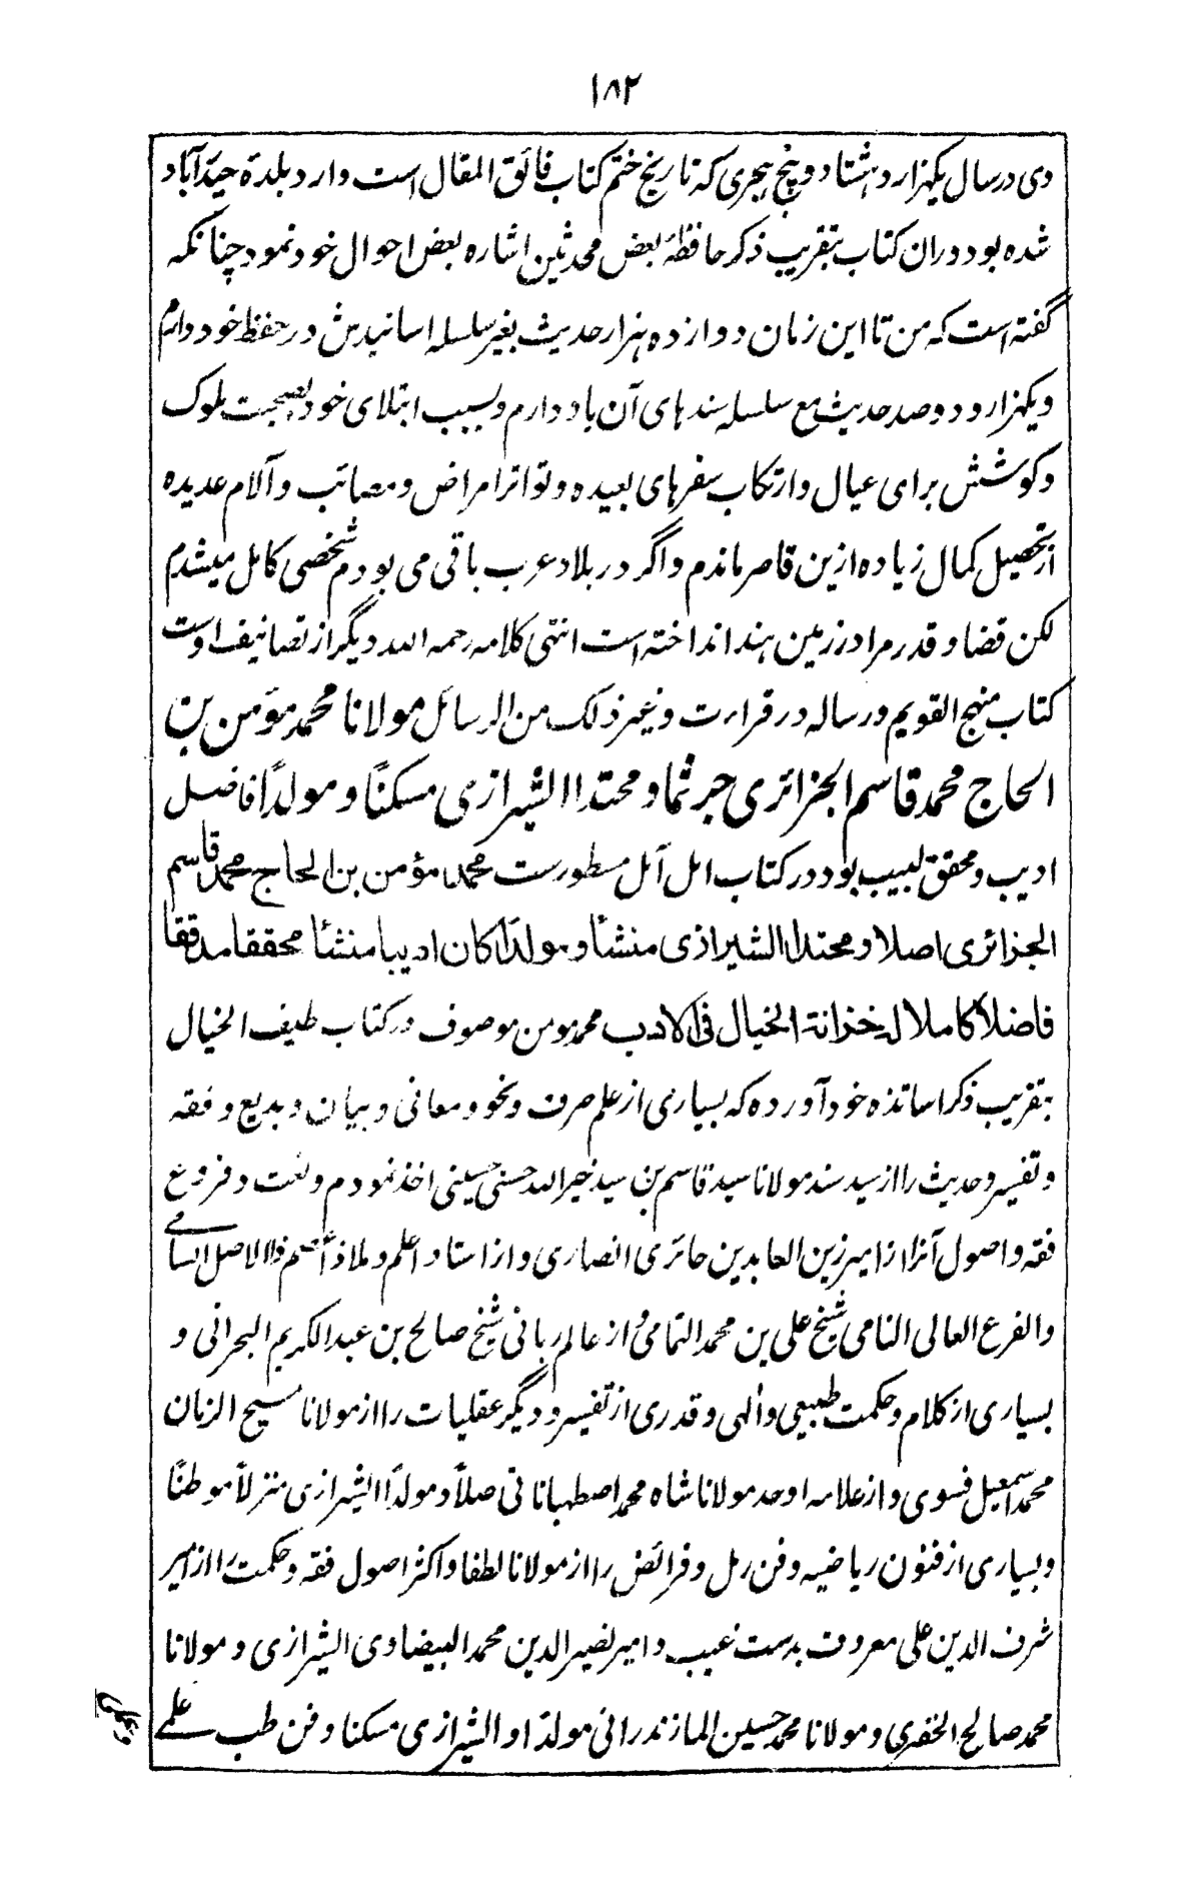 ۱۸۲
وی در سال یکهزار و هشتاد و پنج هجری که تاریخ ختم کتاب فائق المقال است وارد بلدة حیدرآباد
شده بود دران کتاب بتقریب ذکر حافظهٔ بعض محدثین اشاره بعض احوال خود نمود چنانکه
گفته است که من تا این زمان دوازده هزار حدیث بغیر سلسله اسانیدش در حفظ خود دارم
و یکهزار و دوصد حدیث مع سلسله سندهای آن یاد دارم و بسبب ابتلای خود بصحبت ملوک
و کوشش برای عیال و ارتکاب سفرهای بعیده و تواتر امراض و مصائب و آلام عدیده
از تحصیل کمال زیاده ازین قاصر ماندم و اگر در بلاد عرب باقی می بودم شخصی کامل میشدم
لکن قضا و قدر مرا در زمین هند انداخته است انتهی کلامه رحمه الله دیگر از تصانیف اوست
کتاب منهج القویم و رساله در قراءت و غیر ذلک من الرسائل مولانا محمد مؤمن بن
الحاج محمد قاسم الجزائری جرثما و محتدا الشیرازی مسکنًا و مولدًا فاضل
ادیب و محقق لبیب بود در کتاب امل آمل مسطورست محمد مؤمن بن الحاج محمد قاسم
الجزائری اصلا و محتدا الشیرازی منشأ و مولدًا کان ادیبا منشئا محققا مدققا
فاضلا کاملا له خزانة الخیال فی الادب محمد مومن موصوف در کتاب طیف الخیال
بتقریب ذکر اساتذه خود آورده که بسیاری از علم صرف و نحو و معانی و بیان و بدیع و فقه
و تفسیر و حدیث را از سید سند مولانا سید قاسم بن سید خیر الله حسنی حسینی اخذ نمودم و لغت و فروع
فقه و اصول آنرا از امیر زین العابدین حائری انصاری و از استاد اعلم و ملاذ اعصم ذا الاصل السامی
و الفرع العالی النامی شیخ علی بن محمد التمامی و از عالم ربانی شیخ صالح بن عبد الکریم البحرانی و
بسیاری از کلام و حکمت طبیعی و الهی و قدری از تفسیر و دیگر عقلیات را از مولانا مسیح الزمان
محمد اسمعیل فسوی و از علامه اوحد مولانا شاه محمد اصطهباناتی اصلاً و مولدًا الشیرازی منزلاً موطنًا
و بسیاری از فنون ریاضیه و فن رمل و فرائض را از مولانا لطفا و اکثر اصول فقه و حکمت را از امیر
شرف الدین علی معروف بدست غیب و امیر نصیر الدین محمد البیضاوی الشیرازی و مولانا
محمد صالح الخفری و مولانا محمد حسین المازندرانی مولدًا و الشیرازی مسکنا و فن طب علمی